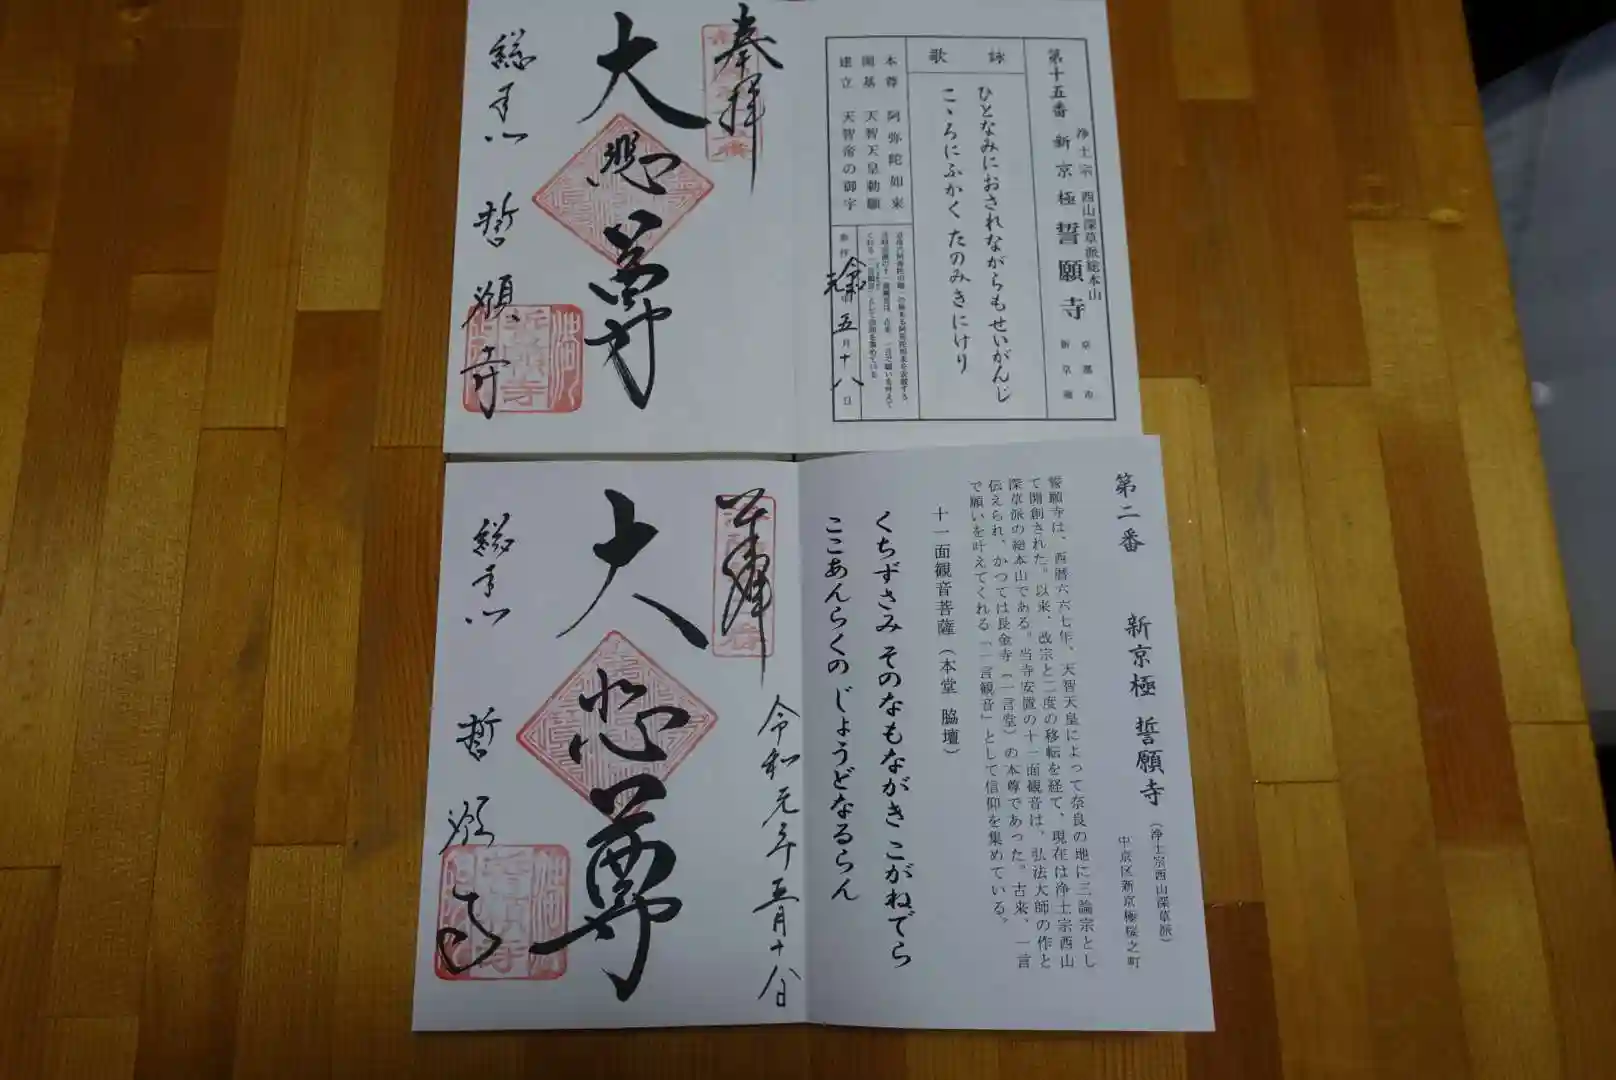 第十五番 新京極 誓願寺
浄土宗 西山深草派総本山
京都市
新京極
詠歌
ひとなみにおされながらもせいがんじ
こゝろにふかくたのみきにけり
本尊 阿弥陀如来
開基 天智天皇勅願
建立 天智帝の御宇
令和元年五月十八日
奉拝
大悲尊
総本山 誓願寺
第二番 新京極 誓願寺
(浄土宗西山深草派)
中京区新京極桜之町
誓願寺は、西暦六六七年、天智天皇によって奈良の地に三論宗とし
て開創された。以来、改宗と二度の移転を経て、現在は浄土宗西山
深草派の総本山である。当寺安置の十一面観音は、弘法大師の作と
伝えられ、かつては長金寺(一言堂)の本尊であった。古来、一言
で願いを叶えてくれる「一言観音」として信仰を集めている。
十一面観音菩薩(本堂 脇壇)
くちずさみ そのなもながき こがねでら
ここあんらくの じょうどなるらん
奉拝
令和元年五月十八日
大悲尊
総本山 誓願寺